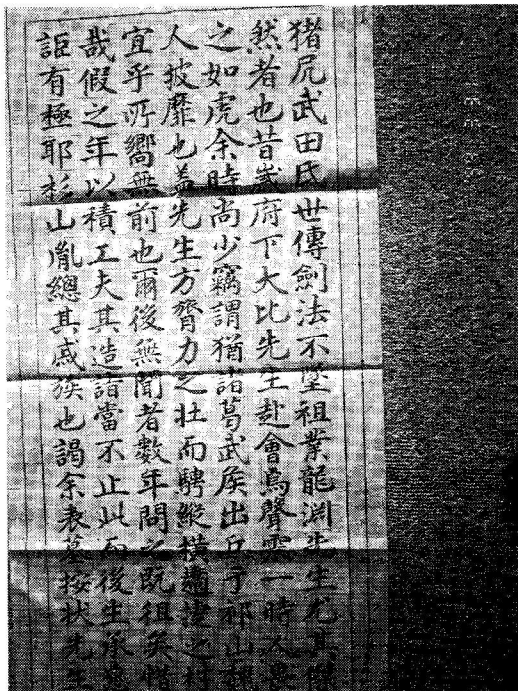 猪尻武田氏世傳劍法不墜祖業龍淵先生尤其傑
然者也昔歲府下大比先生赴會焉聲震一時人畏
之如虎余時尚少竊謂猶諸葛武侯出兵于祁山魏
人披靡也蓋先生方膂力之壮而騁縱横遒捷之材
宜乎所嚮無前也爾後無聞者數年問之既徂矣惜
哉假之年以積工夫其造詣當不止此而後生承
詎有極耶杉山胤總其戚族也謁余表墓按状先生